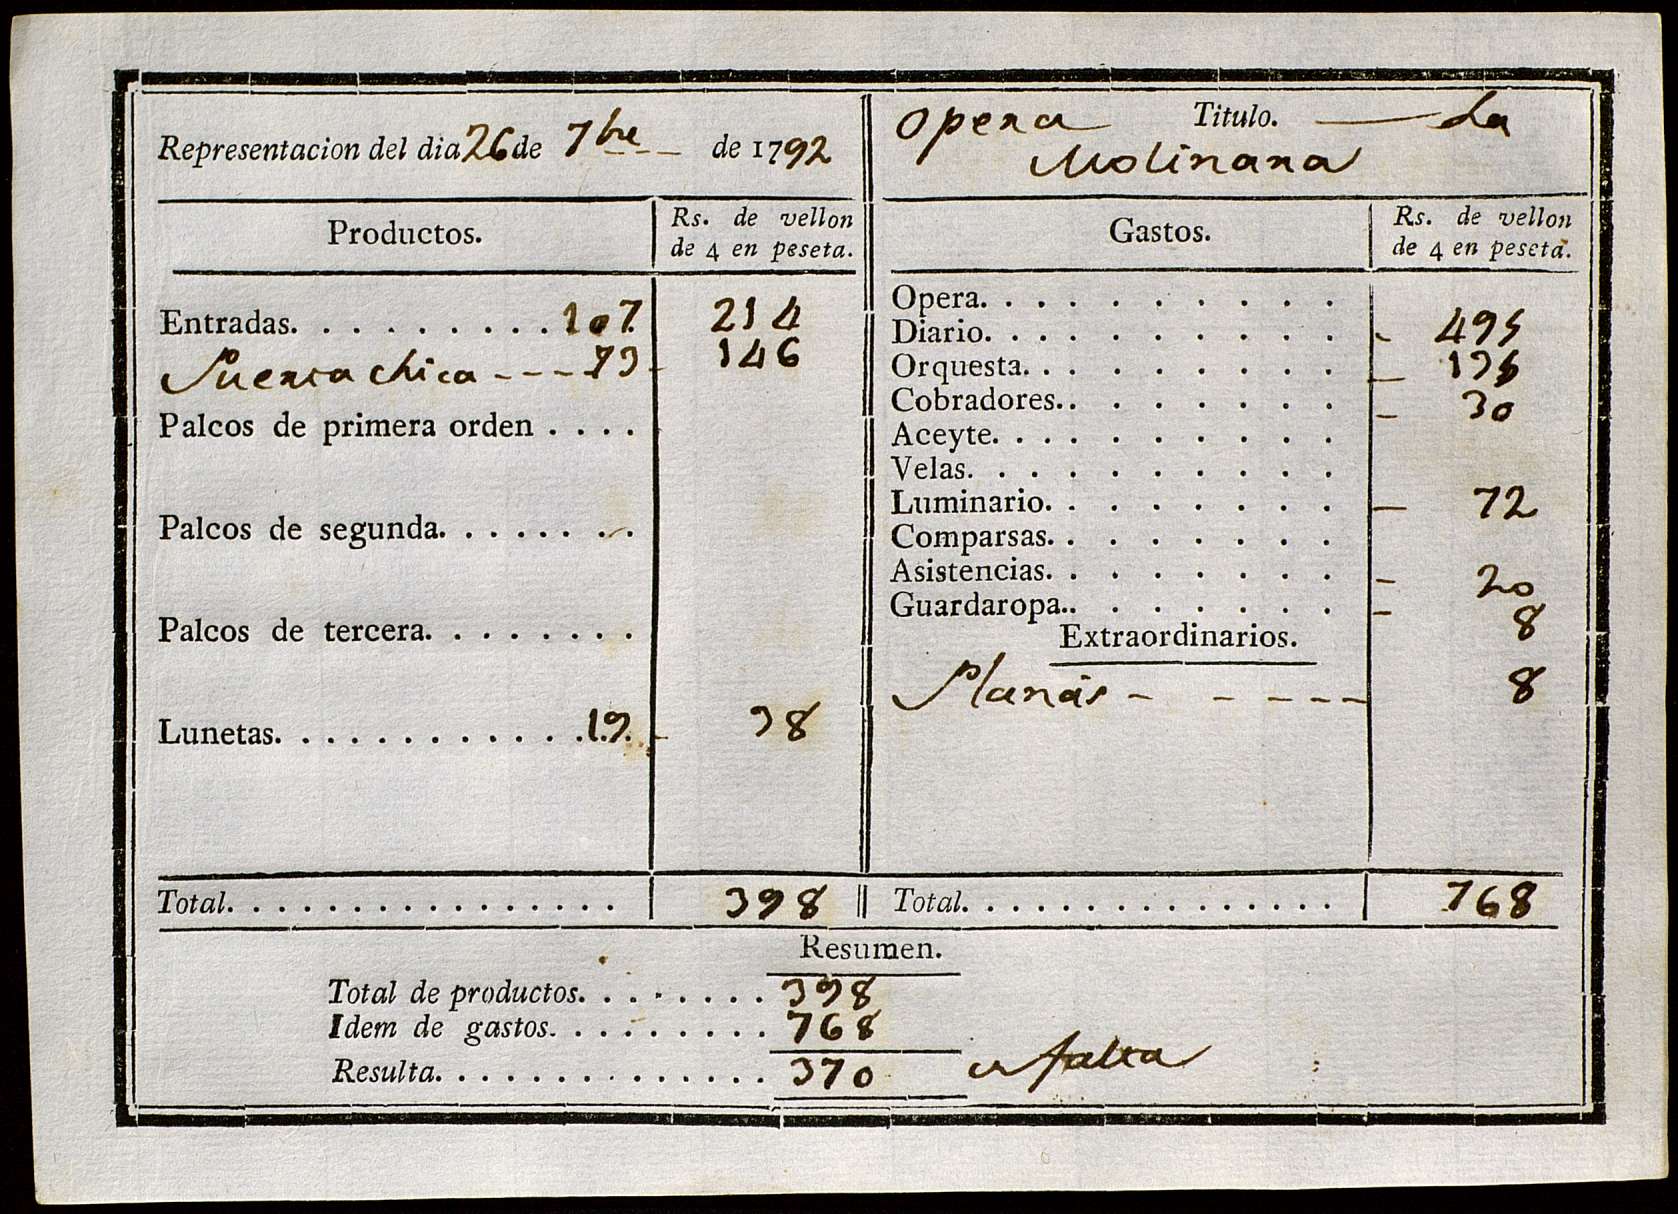 Representacion del dia 26 de 7bre de 1792
Opera Titulo. La
Molinara
Productos.
Rs. de vellon
de 4 en peseta.
Gastos.
Rs. de vellon
de 4 en peseta.
Entradas. . . . . . . . . . 107. 214
Puerta chica - - - 73 - 146
Palcos de primera orden . . . .
Palcos de segunda. . . . . . . .
Palcos de tercera. . . . . . . . .
Lunetas. . . . . . . . . . . . . 19. - 38
Total. . . . . . . . . . . . . . . . 398
Opera. . . . . . . . . .
Diario. . . . . . . . . . - 495
Orquesta. . . . . . . . . - 135
Cobradores.. . . . . . . - 30
Aceyte. . . . . . . . . .
Velas. . . . . . . . . .
Luminario. . . . . . . . - 72
Comparsas. . . . . . . .
Asistencias. . . . . . . . - 20
Guardaropa.. . . . . . . - 8
Extraordinarios.
Planas - - - - - 8
Total. . . . . . . . . . . . . . . . 768
Resumen.
Total de productos. . . . . . . . 398
Idem de gastos. . . . . . . . . 768
Resulta. . . . . . . . . . . . . . 370 en falta